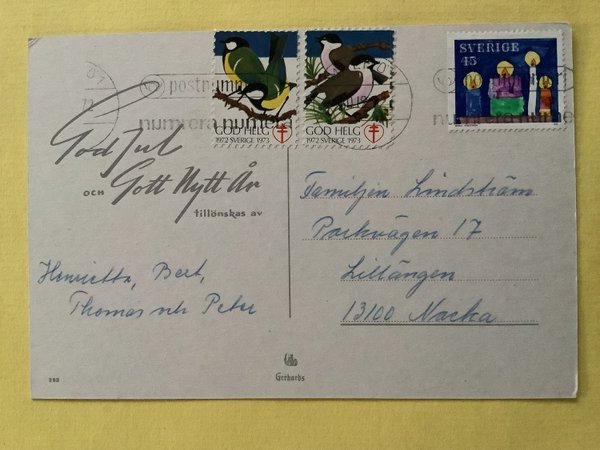 postnumme
numrera numera
GOD HELG
1972 SVERIGE 1973
GOD HELG
1972 SVERIGE 1973
SVERIGE
45
numrera nume
God Jul
OCH Gott Nytt År
tillönskas av
Henrietta, Bert,
Thomas och Peter
Familjen Lindström
Parkvägen 17
Lillängen
13100 Nacka
283
Gerhards